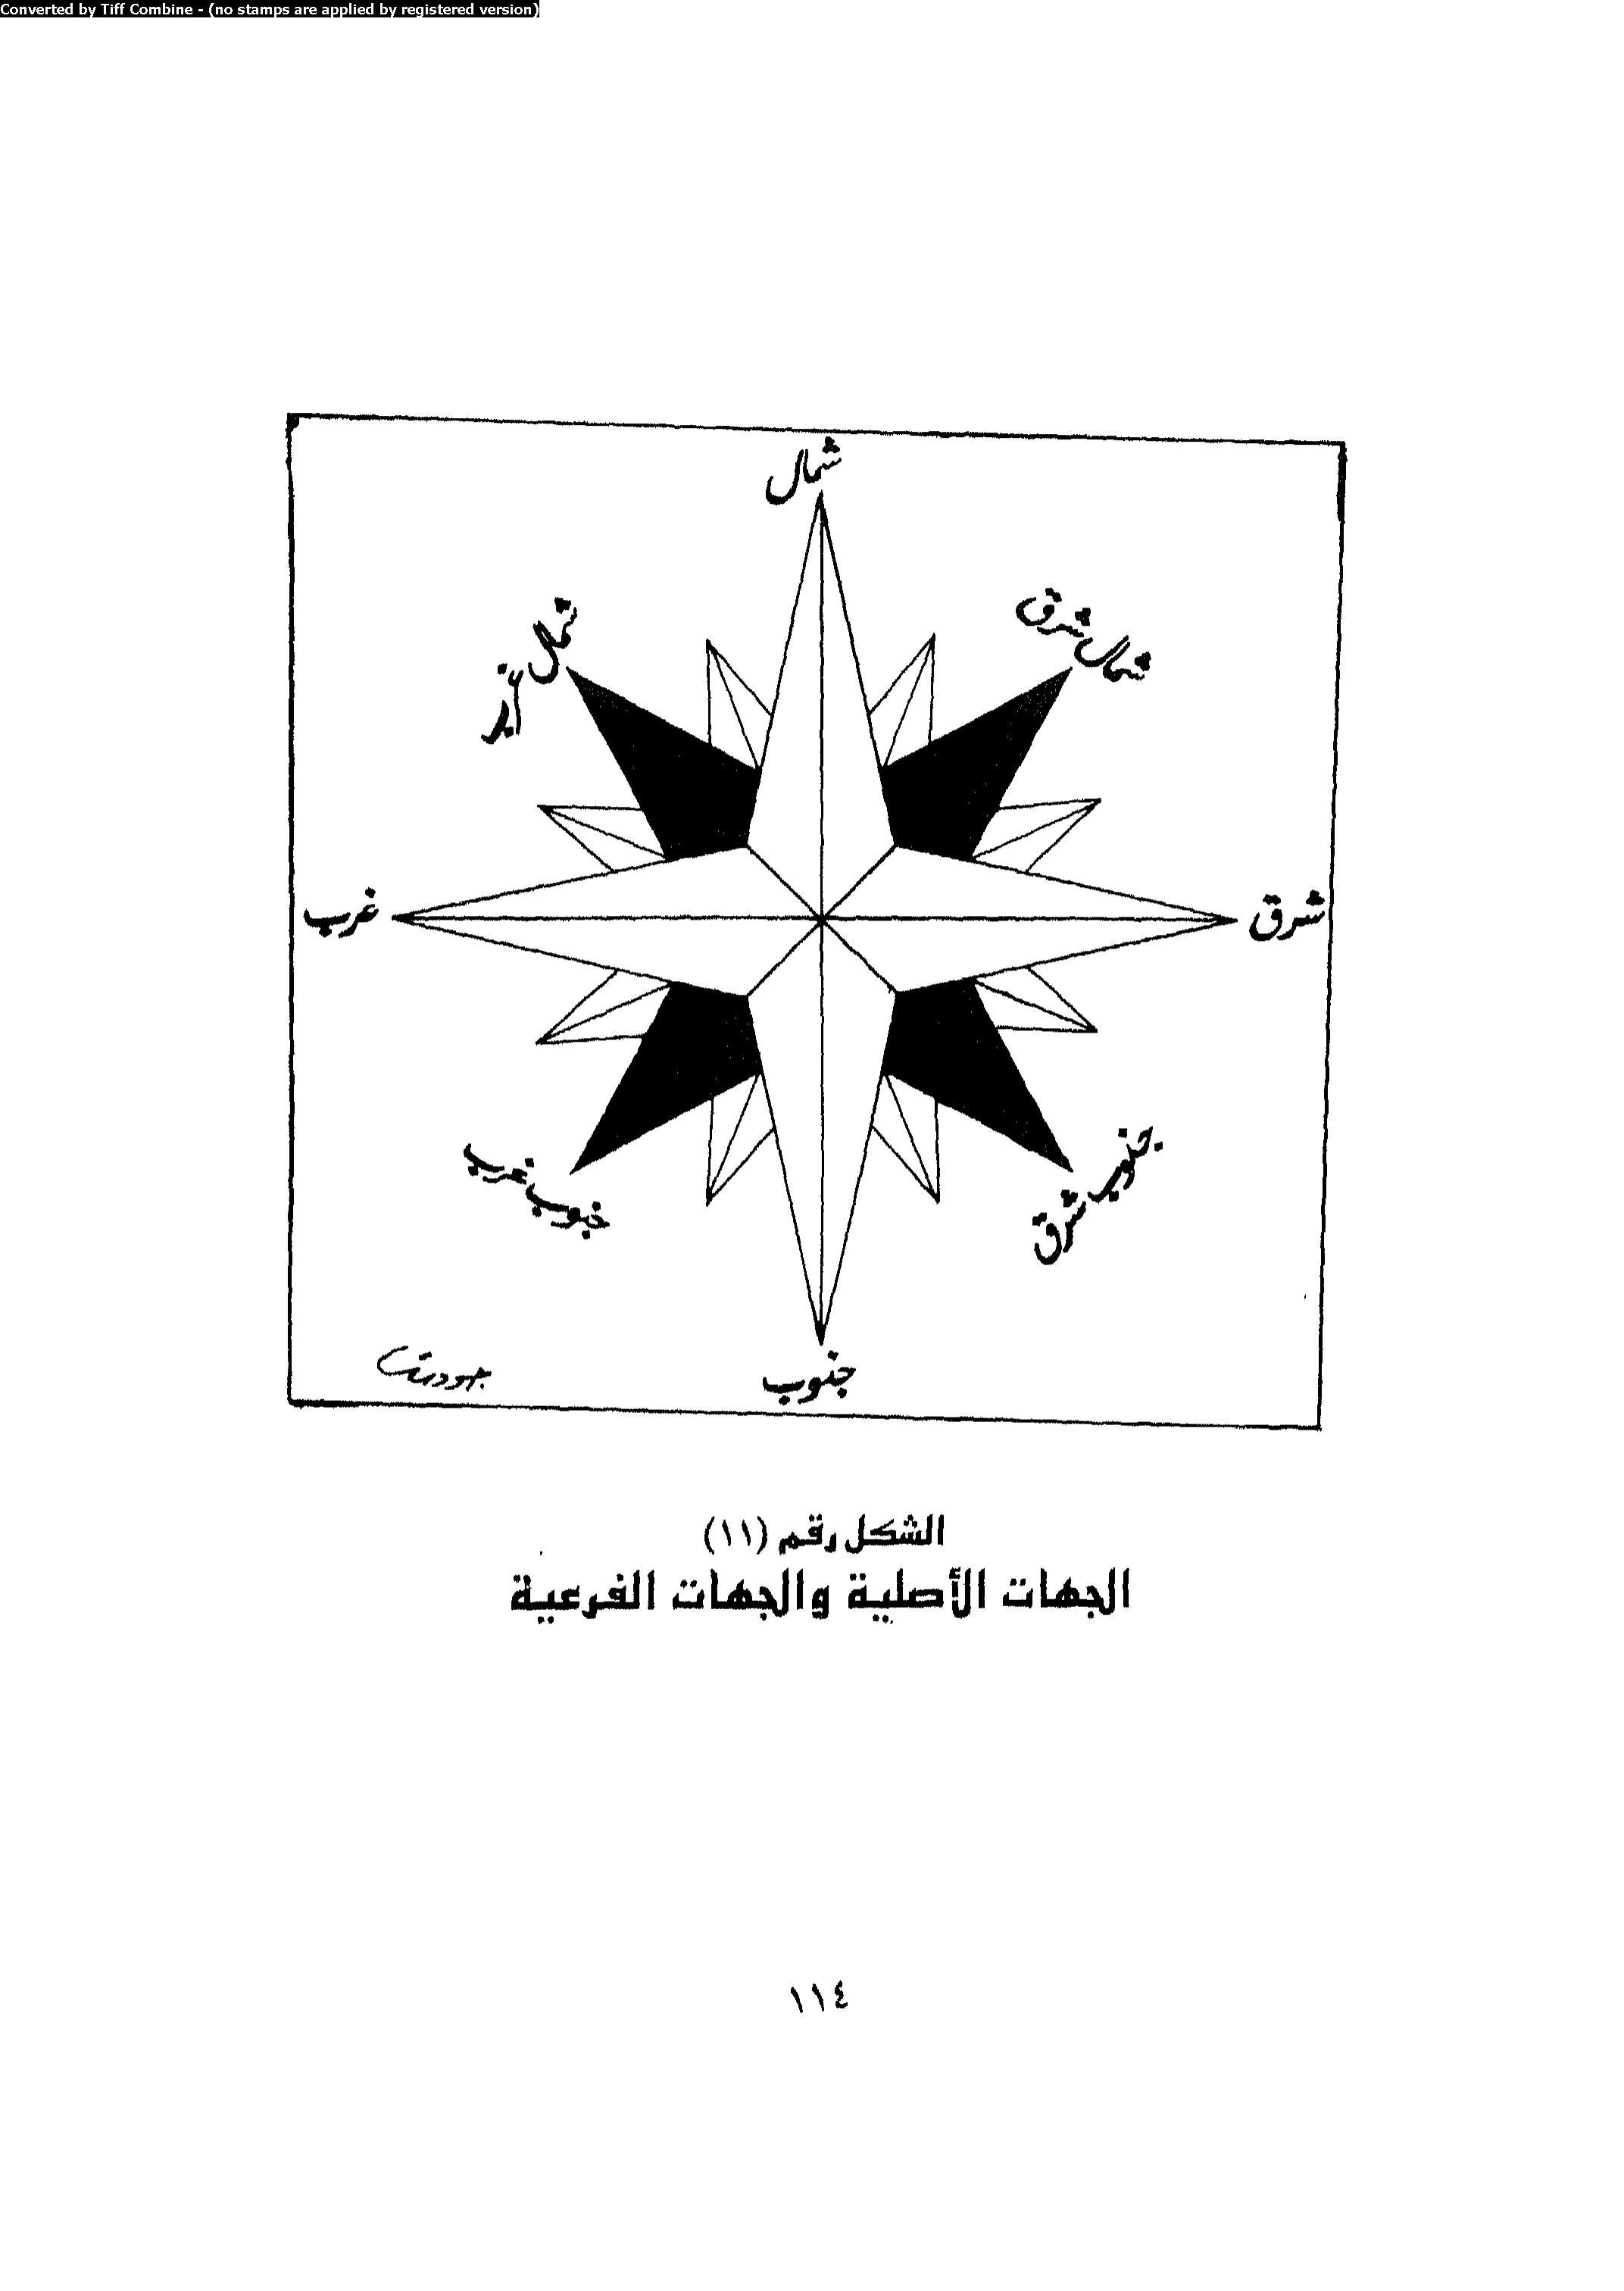 Converted by Tiff Combine - (no stamps are applied by registered version)
شمال
شمال شرق
شمال غرب
شرق
غرب
جنوب شرق
جنوب غرب
جنوب
جودت
الشكل رقم (١١)
الجهات الأصلية والجهات الفرعية
١١٤